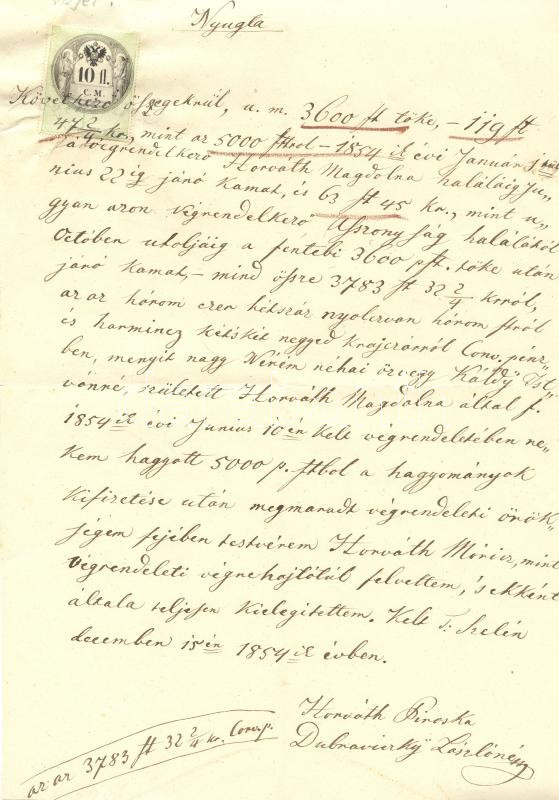 Nyugta
10 fl.
C. M.
Következő összegekrül, u. m. 3600 ft tőke, – 119 ft
47 2/4 kr., mint az 5000 ftbol – 1854 ik évi Január 1 től
a végrendelkező Horváth Magdolna haláláig Ju„
nius 22 ig járó kamat, és 63 ft 45 kr., mint u„
gyan azon végrendelkező Aszonyság halálától
Octóben utoljáig a fentebi 3600 pft. tőke után
járó kamat, – mind össze 3783 ft 32 2/4 krról,
az az három ezer hétszáz nyolczvan három ftról
és harmincz két két negyed krajczárról Conv. pénz„
ben, menyit nagy Néném néhai özvegy Káldy Ist„
vánné, született Horváth Magdolna által f.
1854 ik évi Junius 10 én kelt végrendeletében ne„
kem hagyott 5000 p. ftbol a hagyományok
kifizetése után megmaradt végrendeleti örök„
ségem fejében testvérem Horváth Móricz, mint
végrendeleti végrehajtótúl felvettem, 's ekként
általa teljesen kielegitettem. Kelt T. Szelén
december 15 én 1854 ik évben.
Horváth Piroska
Dubraviczky Lászlóné
az az 3783 ft 32 2/4 kr. Conv. p.